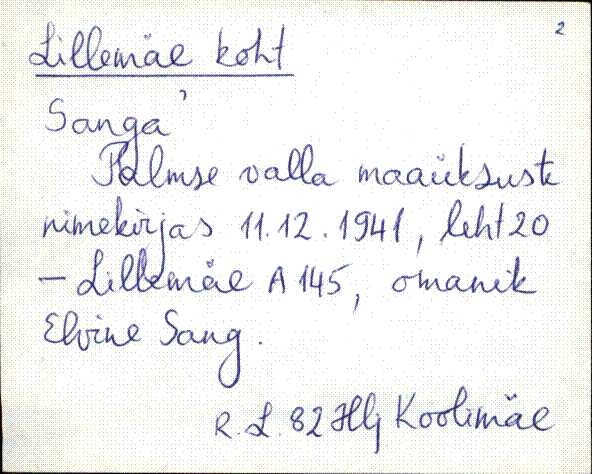 2
Lillemäe koht
Sanga'
Palmse valla maaüksuste
nimekirjas 11.12.1941, leht 20
— Lillemäe A 145, omanik
Elvine Sang.
R. L. 82 Hlj Koolimäe